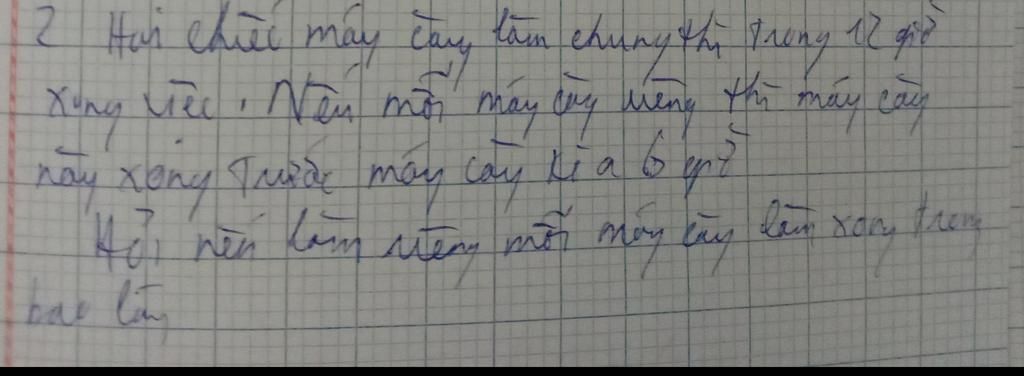 2 Hai chiếc máy cày làm chung thì trong 12 giờ
xong việc. Nếu mỗi máy cày riêng thì máy cày
này xong trước máy cày kia 6 giờ
Hỏi nếu làm riêng mỗi máy cày làm xong trong
bao lâu